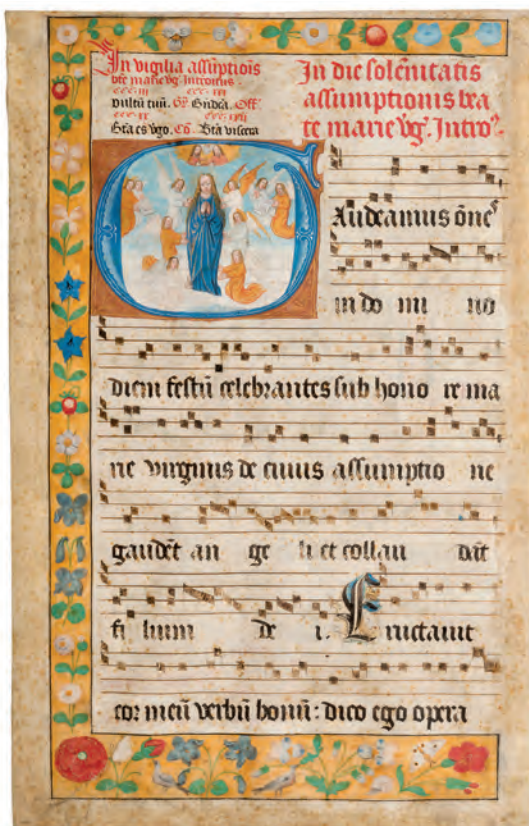 In vigilia assũptiois
bte marie vg. Introitus.
ccc. iii ccc. xxi
vultũ tuũ. Gr̃ Gaudea. Off̃
ccc. xx
Bta es v̾go. Cõ. Bta viscera
In die solẽnitatis
assumptionis bea
te marie v̾g. Intro
GAudeamus õnes
in do mi no
diem festũ celebrantes sub hono re ma
rie virginis de cuius assumptio ne
gaudẽt an ge li et collau dãt
fi lium de i. Eructauit
cor meũ verbũ bonũ: dico ego opera